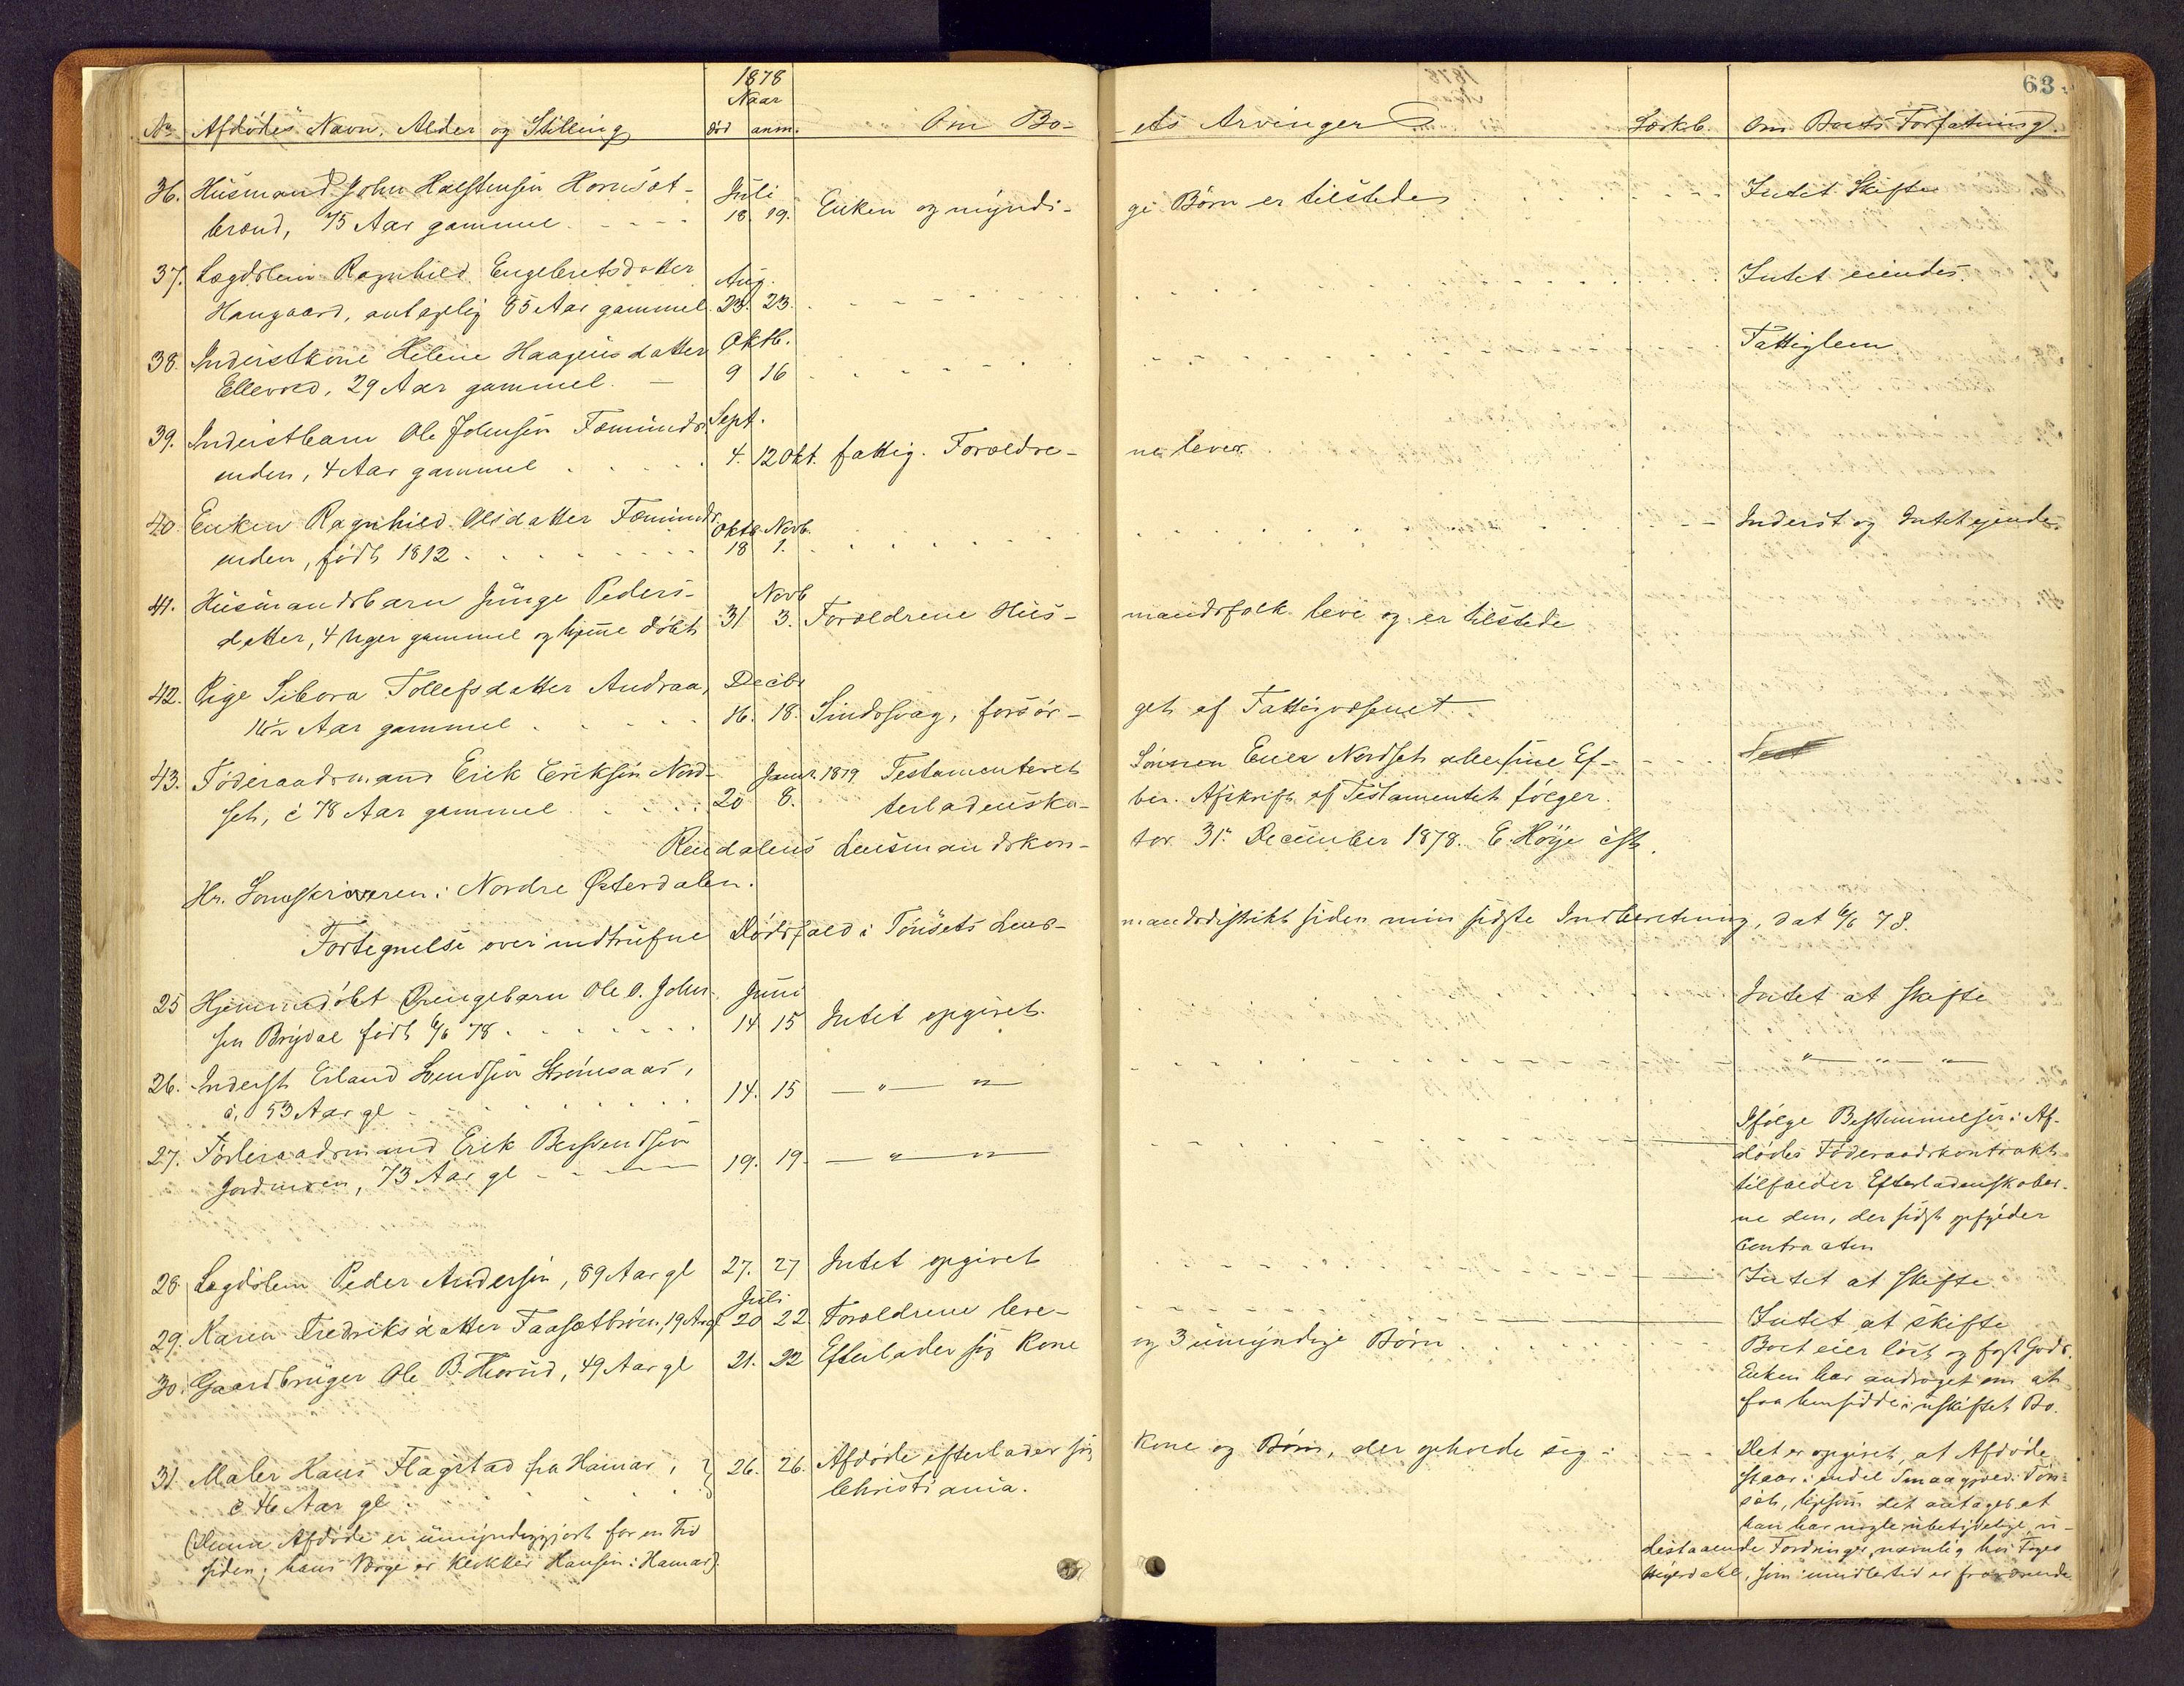 1878
Naar
63.
No Afdødes Navn, Alder og Stilling død anm. Om Bo- -ets Arvinger Særkb. Om Boets Forfatning.
36. Husmand John Halstensen Hornsæt- Juli Intet Skifte
brænd, 75 Aar gammel 18. 19. Enken og myndi- ge Børn er tilstede
37. Lægdslem Ragnhild Engebretsdatter Aug. Intet eiendes.
Haugaard, antagelig 85 Aar gammel 23. 23.
38. Inderstkone Helene Haagensdatter Oktb. Fattiglem
Ellevold, 29 Aar gammel. 9 16
39. Inderstbarn Ole Johnsen Fæmunds- Sept.
enden, 4 Aar gammel 4. 12 Okt. fattig. Forældre- ne lever
40. Enken Ragnhild Olsdatter Fæmunds Oktb Novb. Inderst og Intet ejende
enden, født 1812 18 1.
41. Husmandsbarn Junge Peders- Novb
datter, 4 Uger gammel og hjemme døbt 31 3. Forældrene Hus- mandsfolk leve og er tilstede
42. Pige Sibora Tollefsdatter Andraa, Decbr
16½ Aar gammel 16. 18. Sindssvag, forsør- get af Fattigvæsenet
43. Føderaadsmand Erik Eriksen Nord- Janr. 1879 Testamenteret Sønnen Erik Nordset alle sine Ef-
set, c 78 Aar gammel 20 8. terladenska- ber. Afskrift af Testamentet følger.
Rendalens Lensmandskon- tor 31. December 1878. E. Høye cst.
Hr. Sorenskriveren i Nordre Østerdalen.
Fortegnelse over indtrufne Dødsfald i Tönsets Lens- mandsdistrikt siden min sidste Indberetning, dat 6/6 78.
25 Hjemmedøbt Drengebarn Ole O. John- Juni Intet at skifte
sen Brydal født 6/6 78 14 15 Intet opgivet.
26. Inderst Erland Svendsen Strømsaas, 14. 15 — " — " — " — " — "
c. 53 Aar gl
27. Føderaadsmand Erik Bersvendsen 19. 19. — " — " Ifølge Bestemmelser i Af-
Jordmoen, 73 Aar gl dødes Føderaadskontrakt
tilfalder Efterladenskaber-
ne den, der sidst opfylder
Contracten
28 Lægdslem Peder Andersen, 89 Aar gl 27. 27 Intet opgivet Intet at skifte
29. Karen Fredriksdatter Faasætbrøen, 19 Aar gl Juli 20 22 Forældrene leve- Intet at skifte
30. Gaardbruger Ole B. Horud, 49 Aar gl 21. 22 Efterlader sig Kone og 3 umyndige Børn Boet eier löst og fast Gods.
Enken har andraget om at
faa hensidde i uskiftet Bo.
31. Maler Hans Flagstad fra Hamar, 26. 26. Afdøde efterlader sig Kone og Børn, der opholde sig i Det er opgivet, at Afdøde
c 46 Aar gl Christiania. staar i endel Smaagjæld i Tön-
set, ligesom det antages at
(Denne Afdøde er umyndiggjort for en Tid han har nogle ubetydelige u-
siden; hans Værge er Klokker Hansen i Hamar). destaaende Fordringer, navnlig hos
som imidlertid er fraværende